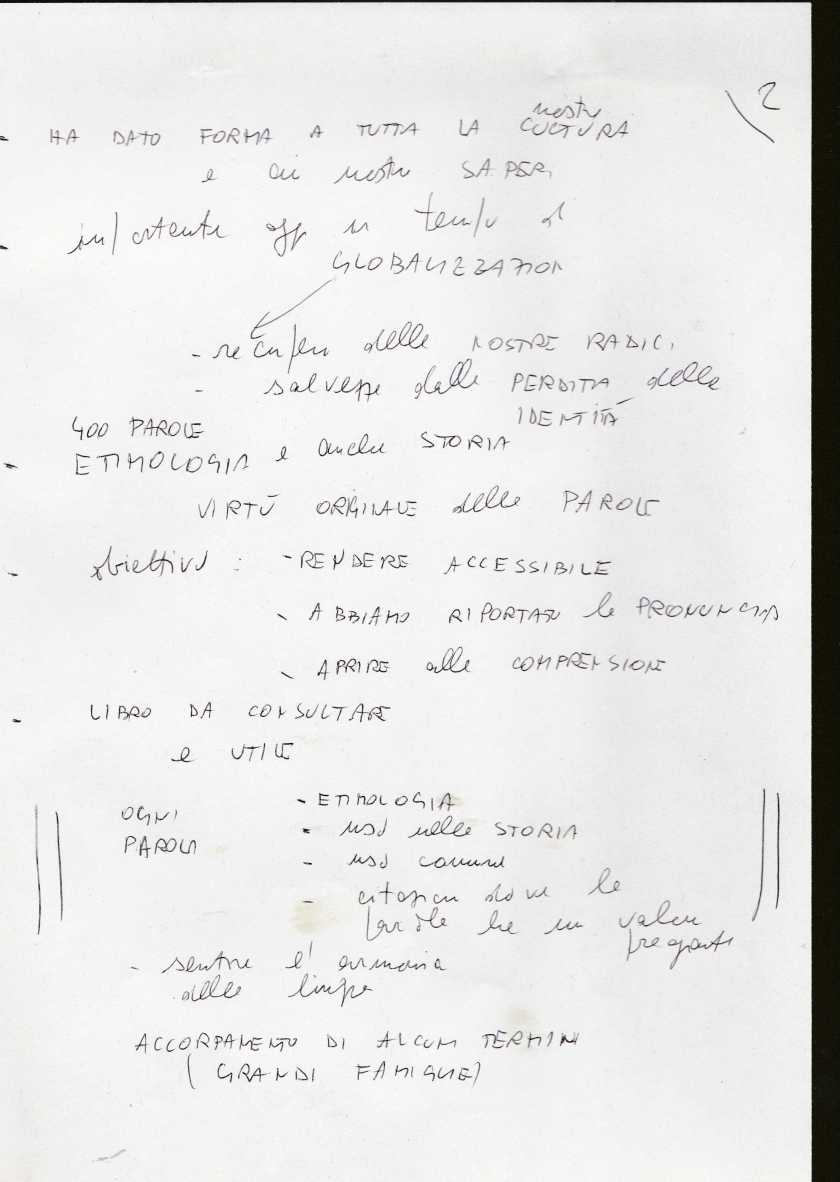 2
nostra
- HA DATO FORMA A TUTTA LA CULTURA
e ai nostri SAPERI
- importante oggi in tempo di
GLOBALIZZAZION
- recupero delle NOSTRE RADICI
- salvezza dalla PERDITA della
IDENTITÀ
400 PAROLE
- ETIMOLOGIA e anche STORIA
VIRTÙ ORIGINALE delle PAROLE
- obiettivo : - RENDERE ACCESSIBILE
- ABBIAMO RIPORTATO la PRONUNCIA
- APRIRE alla COMPRENSIONE
- LIBRO DA CONSULTARE
e UTILE
OGNI
PAROLA
- ETIMOLOGIA
- uso nella STORIA
- uso comune
- citazioni dove la
parola ha un valore
pregnante
- sentire l'armonia
della lingua
ACCORPAMENTO DI ALCUNI TERMINI
( GRANDI FAMIGLIE)